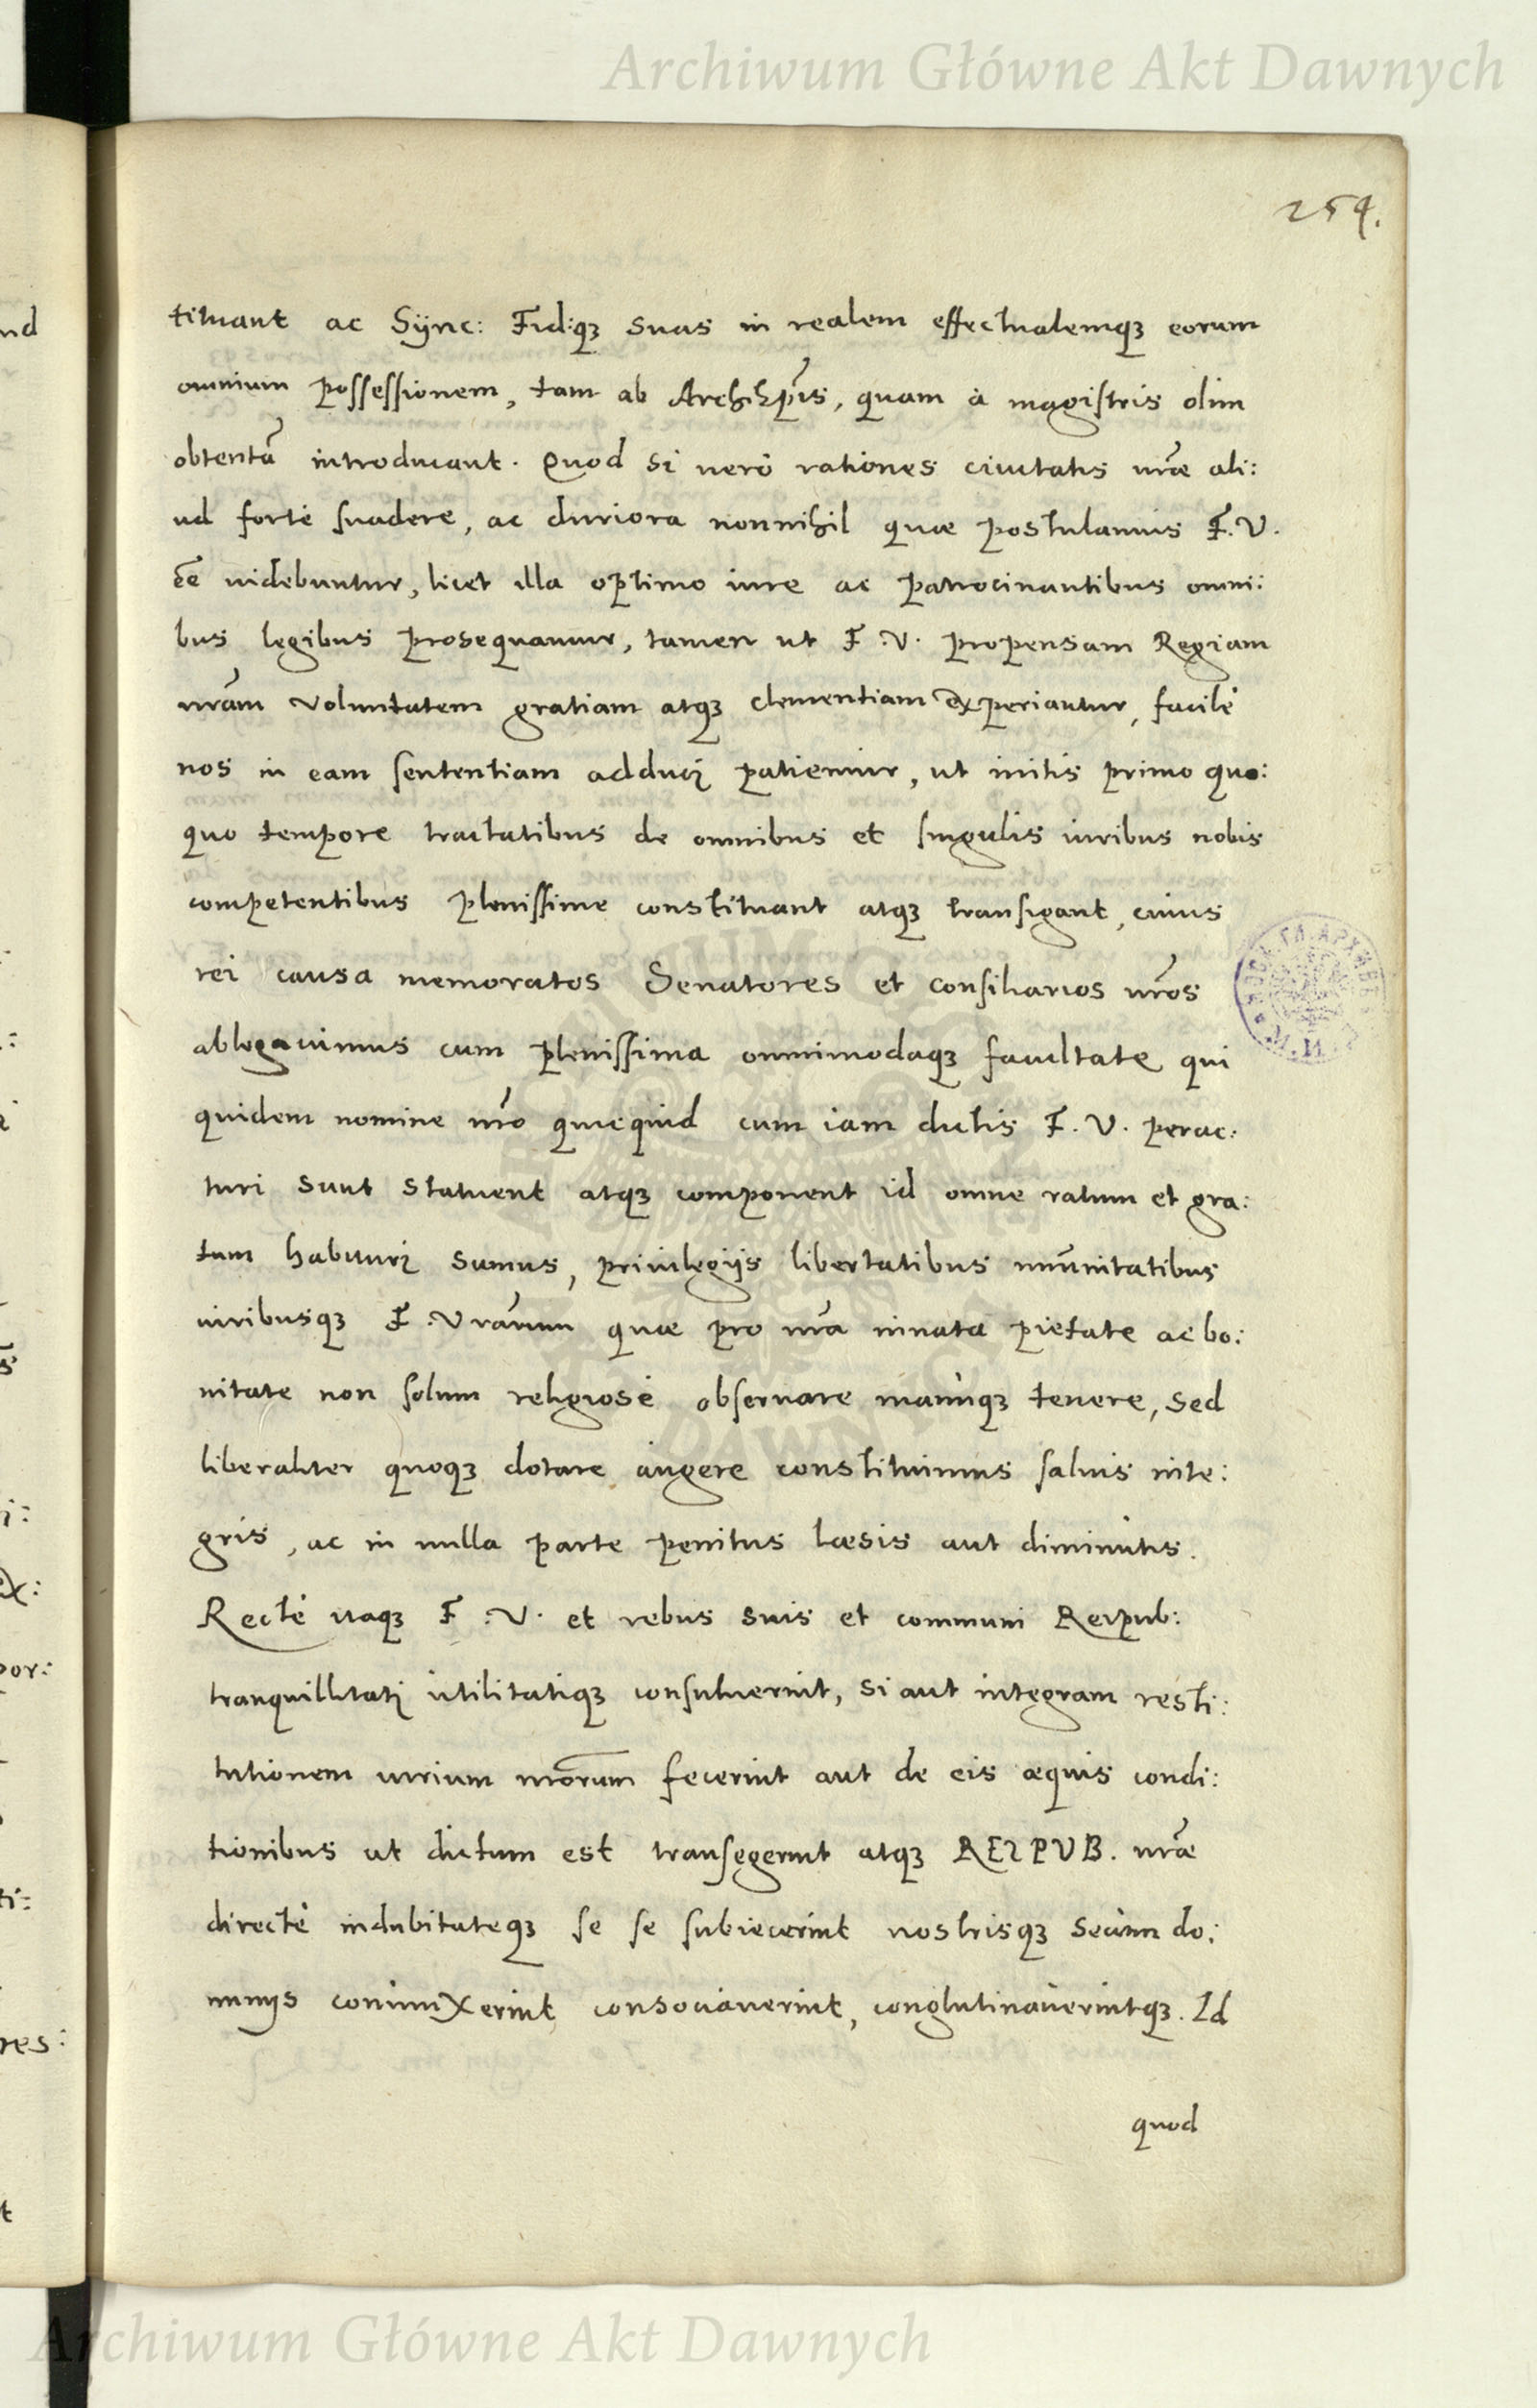 Archiwum Główne Akt Dawnych
254.
tituant ac Sÿnc: Fid:qꝫ suas in realem effectualemqꝫ eorum
omnium possessionem, tam ab Archiēpis, quam à magistris olim
obtentā introducant. Quod si uerò rationes ciuitatis ur̃æ ali:
ud fortè suadere, ac duriora nonnihil quæ postulamus F. V.
eē̃ uidebuntur, licet illa optimo iure ac patrocinantibus omni:
bus legibus prosequamur, tamen ut F. V. propensam Regiam
nr̃am voluntatem gratiam atqꝫ clementiam experiantur, facilè
nos in eam sententiam adduci patiemur, ut initis primo quo:
quo tempore tractatibus de omnibus et singulis iuribus nobis
competentibus plenissime constituant atqꝫ transigant, cuius
rei causa memoratos Senatores et consiliarios nr̃os
ablegauimus cum plenissima omnimodaqꝫ facultate qui
quidem nomine nr̃o quicquid cum iam dictis F. V. perac:
turi sunt statuent atqꝫ component id omne ratum et gra:
tum habituri sumus, priuilegijs libertatibus im̃unitatibus
iuribusqꝫ F. Vrarum quæ pro nr̃a innata pietate ac bo:
nitate non solum religiosè obseruare manuqꝫ tenere, sed
liberaliter quoqꝫ dotare augere constituimus saluis inte:
gris, ac in nulla parte penitus læsis aut diminutis.
Rectè itaqꝫ F. V. et rebus suis et communi Reipub:
tranquillitati utilitatiqꝫ consuluerint, si aut integram resti:
tutionem iurium nr̃orum fecerint aut de eis æquis condi:
tionibus ut dictum est transegerint atqꝫ REIPUB. nr̃æ
directè indubitateqꝫ se se subiecerint nostrisqꝫ secum do:
minijs coniunxerint consociauerint, conglutinauerintqꝫ. Id
quod
Archiwum Główne Akt Dawnych